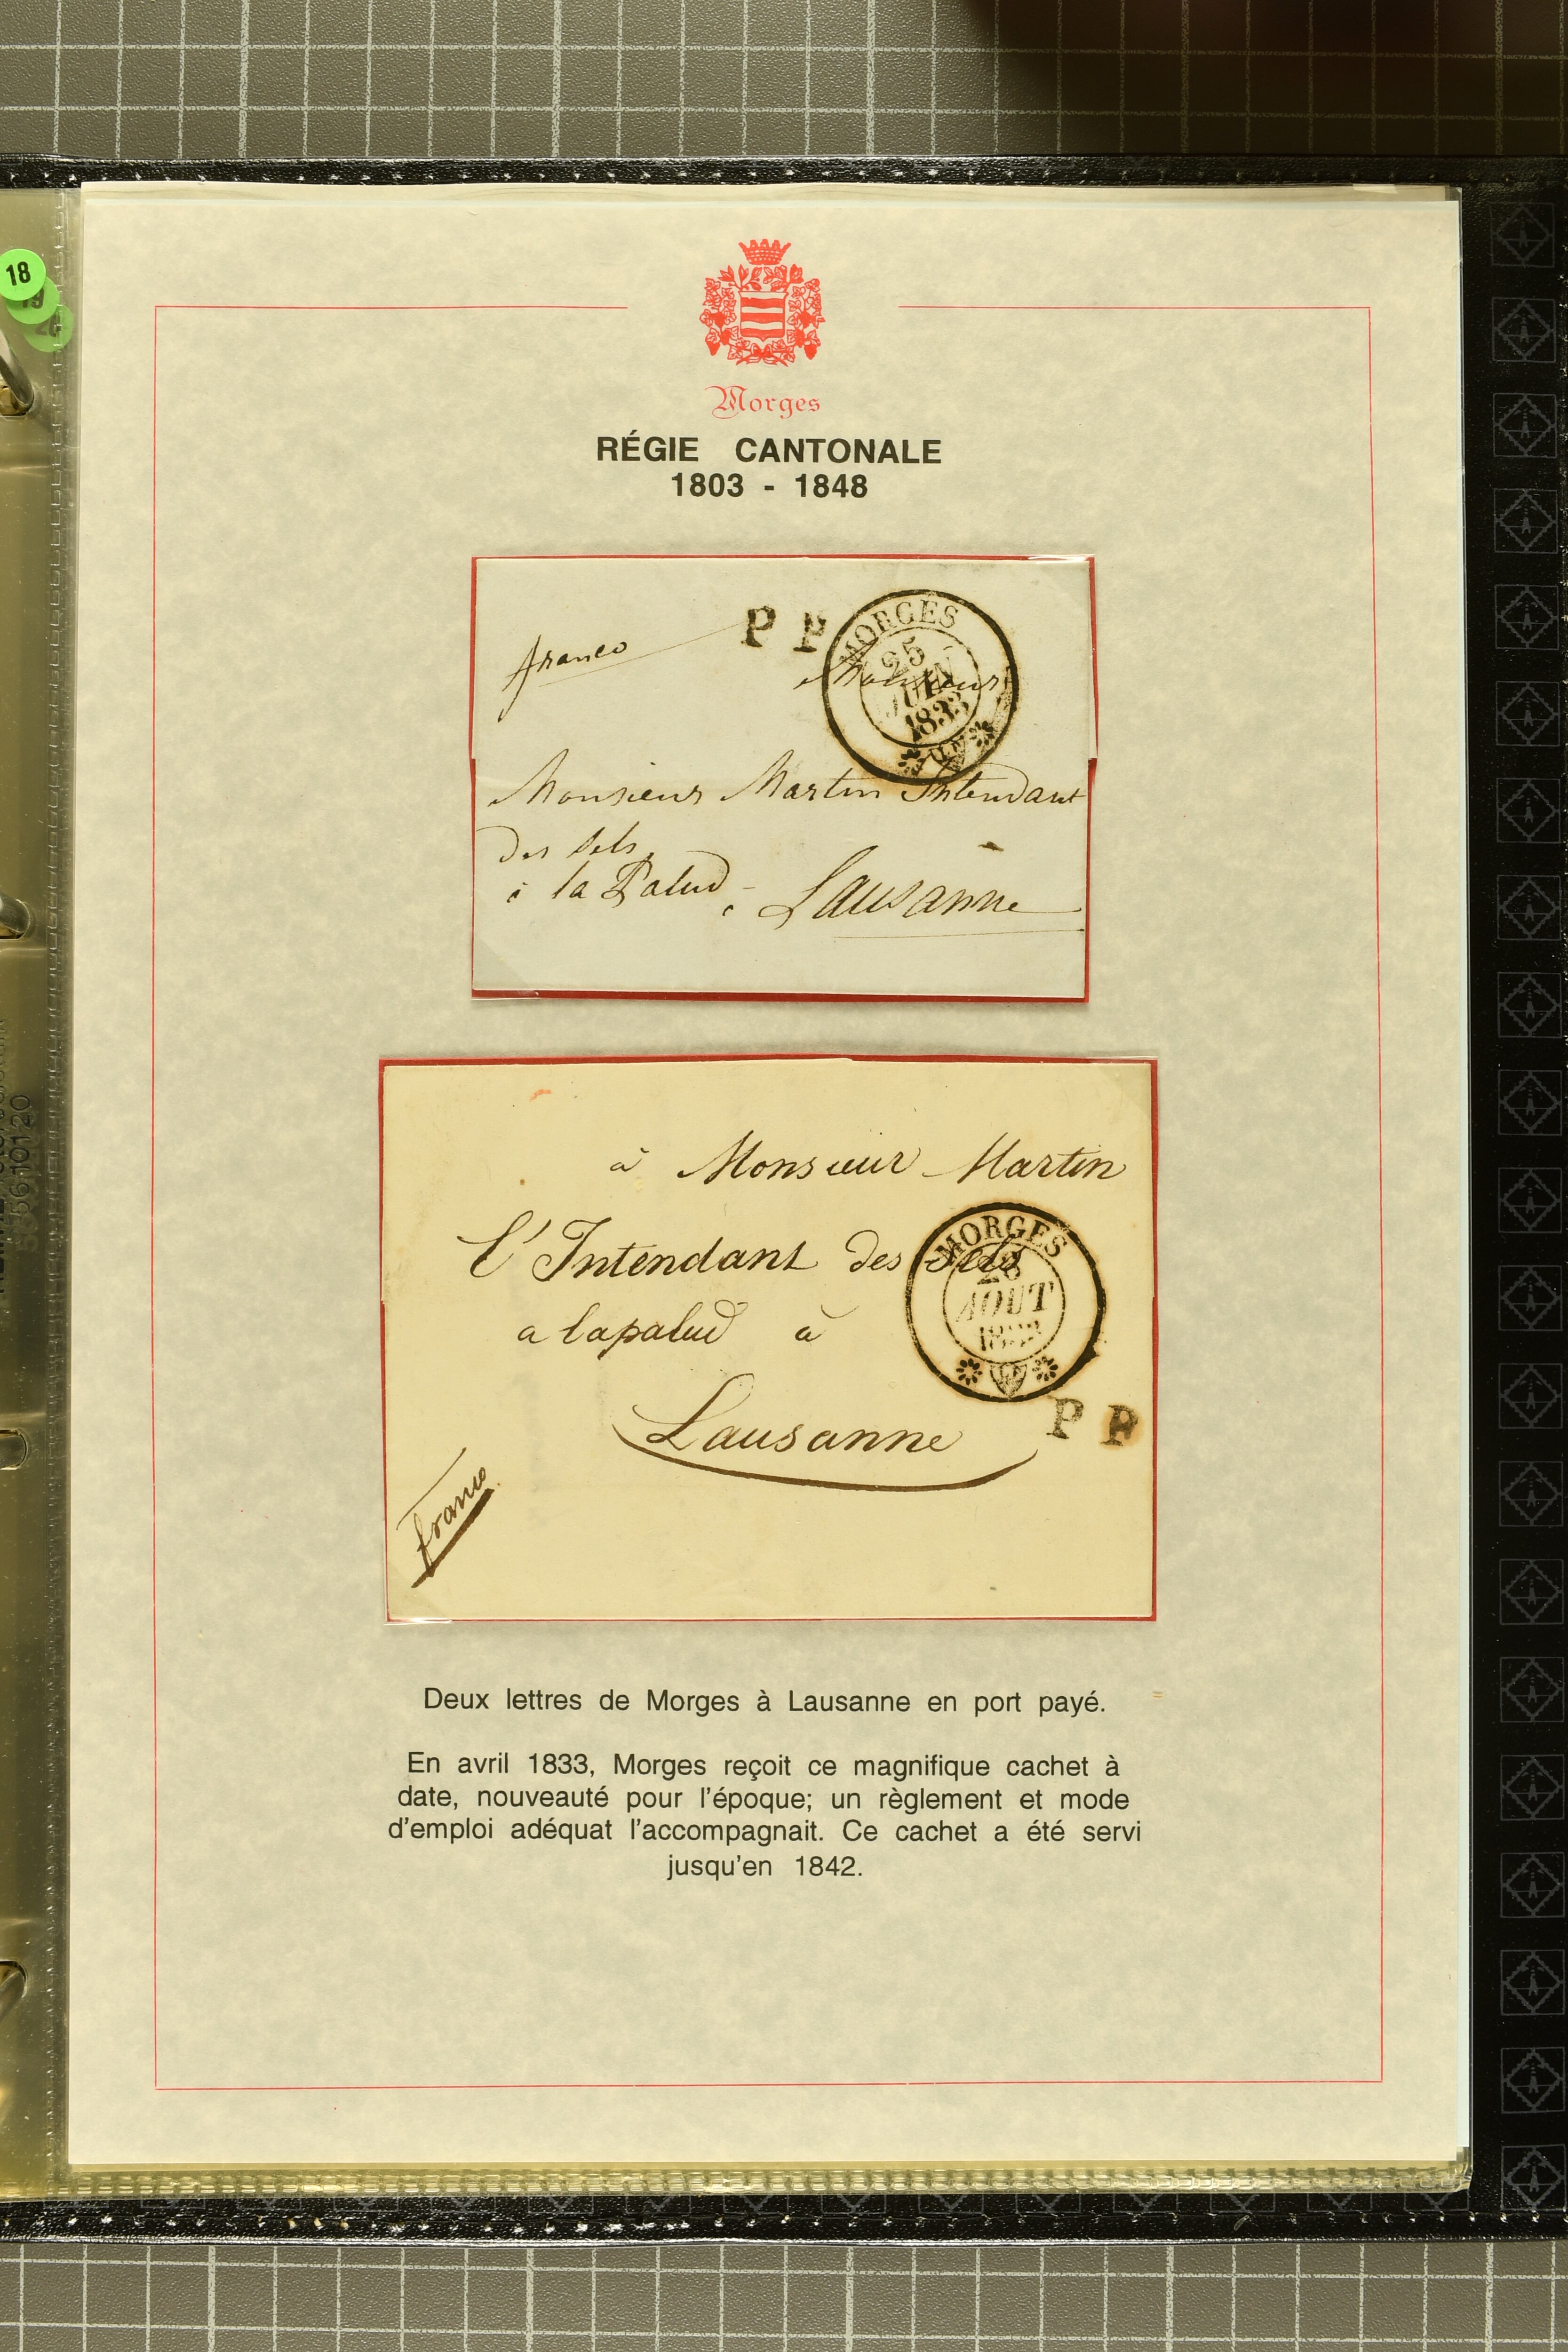 18
19
Morges
RÉGIE CANTONALE
1803 - 1848
franco
P P
MORGES
25
JUIN
1833
Monsieur
Monsieur Martin Intendant
des Sels
à la Palud, à Lausanne
à Monsieur Martin
L'Intendant des Sels
a lapalud à
Lausanne
MORGES
28
AOUT
P P
franco
Deux lettres de Morges à Lausanne en port payé.
En avril 1833, Morges reçoit ce magnifique cachet à
date, nouveauté pour l'époque; un règlement et mode
d'emploi adéquat l'accompagnait. Ce cachet a été servi
jusqu'en 1842.